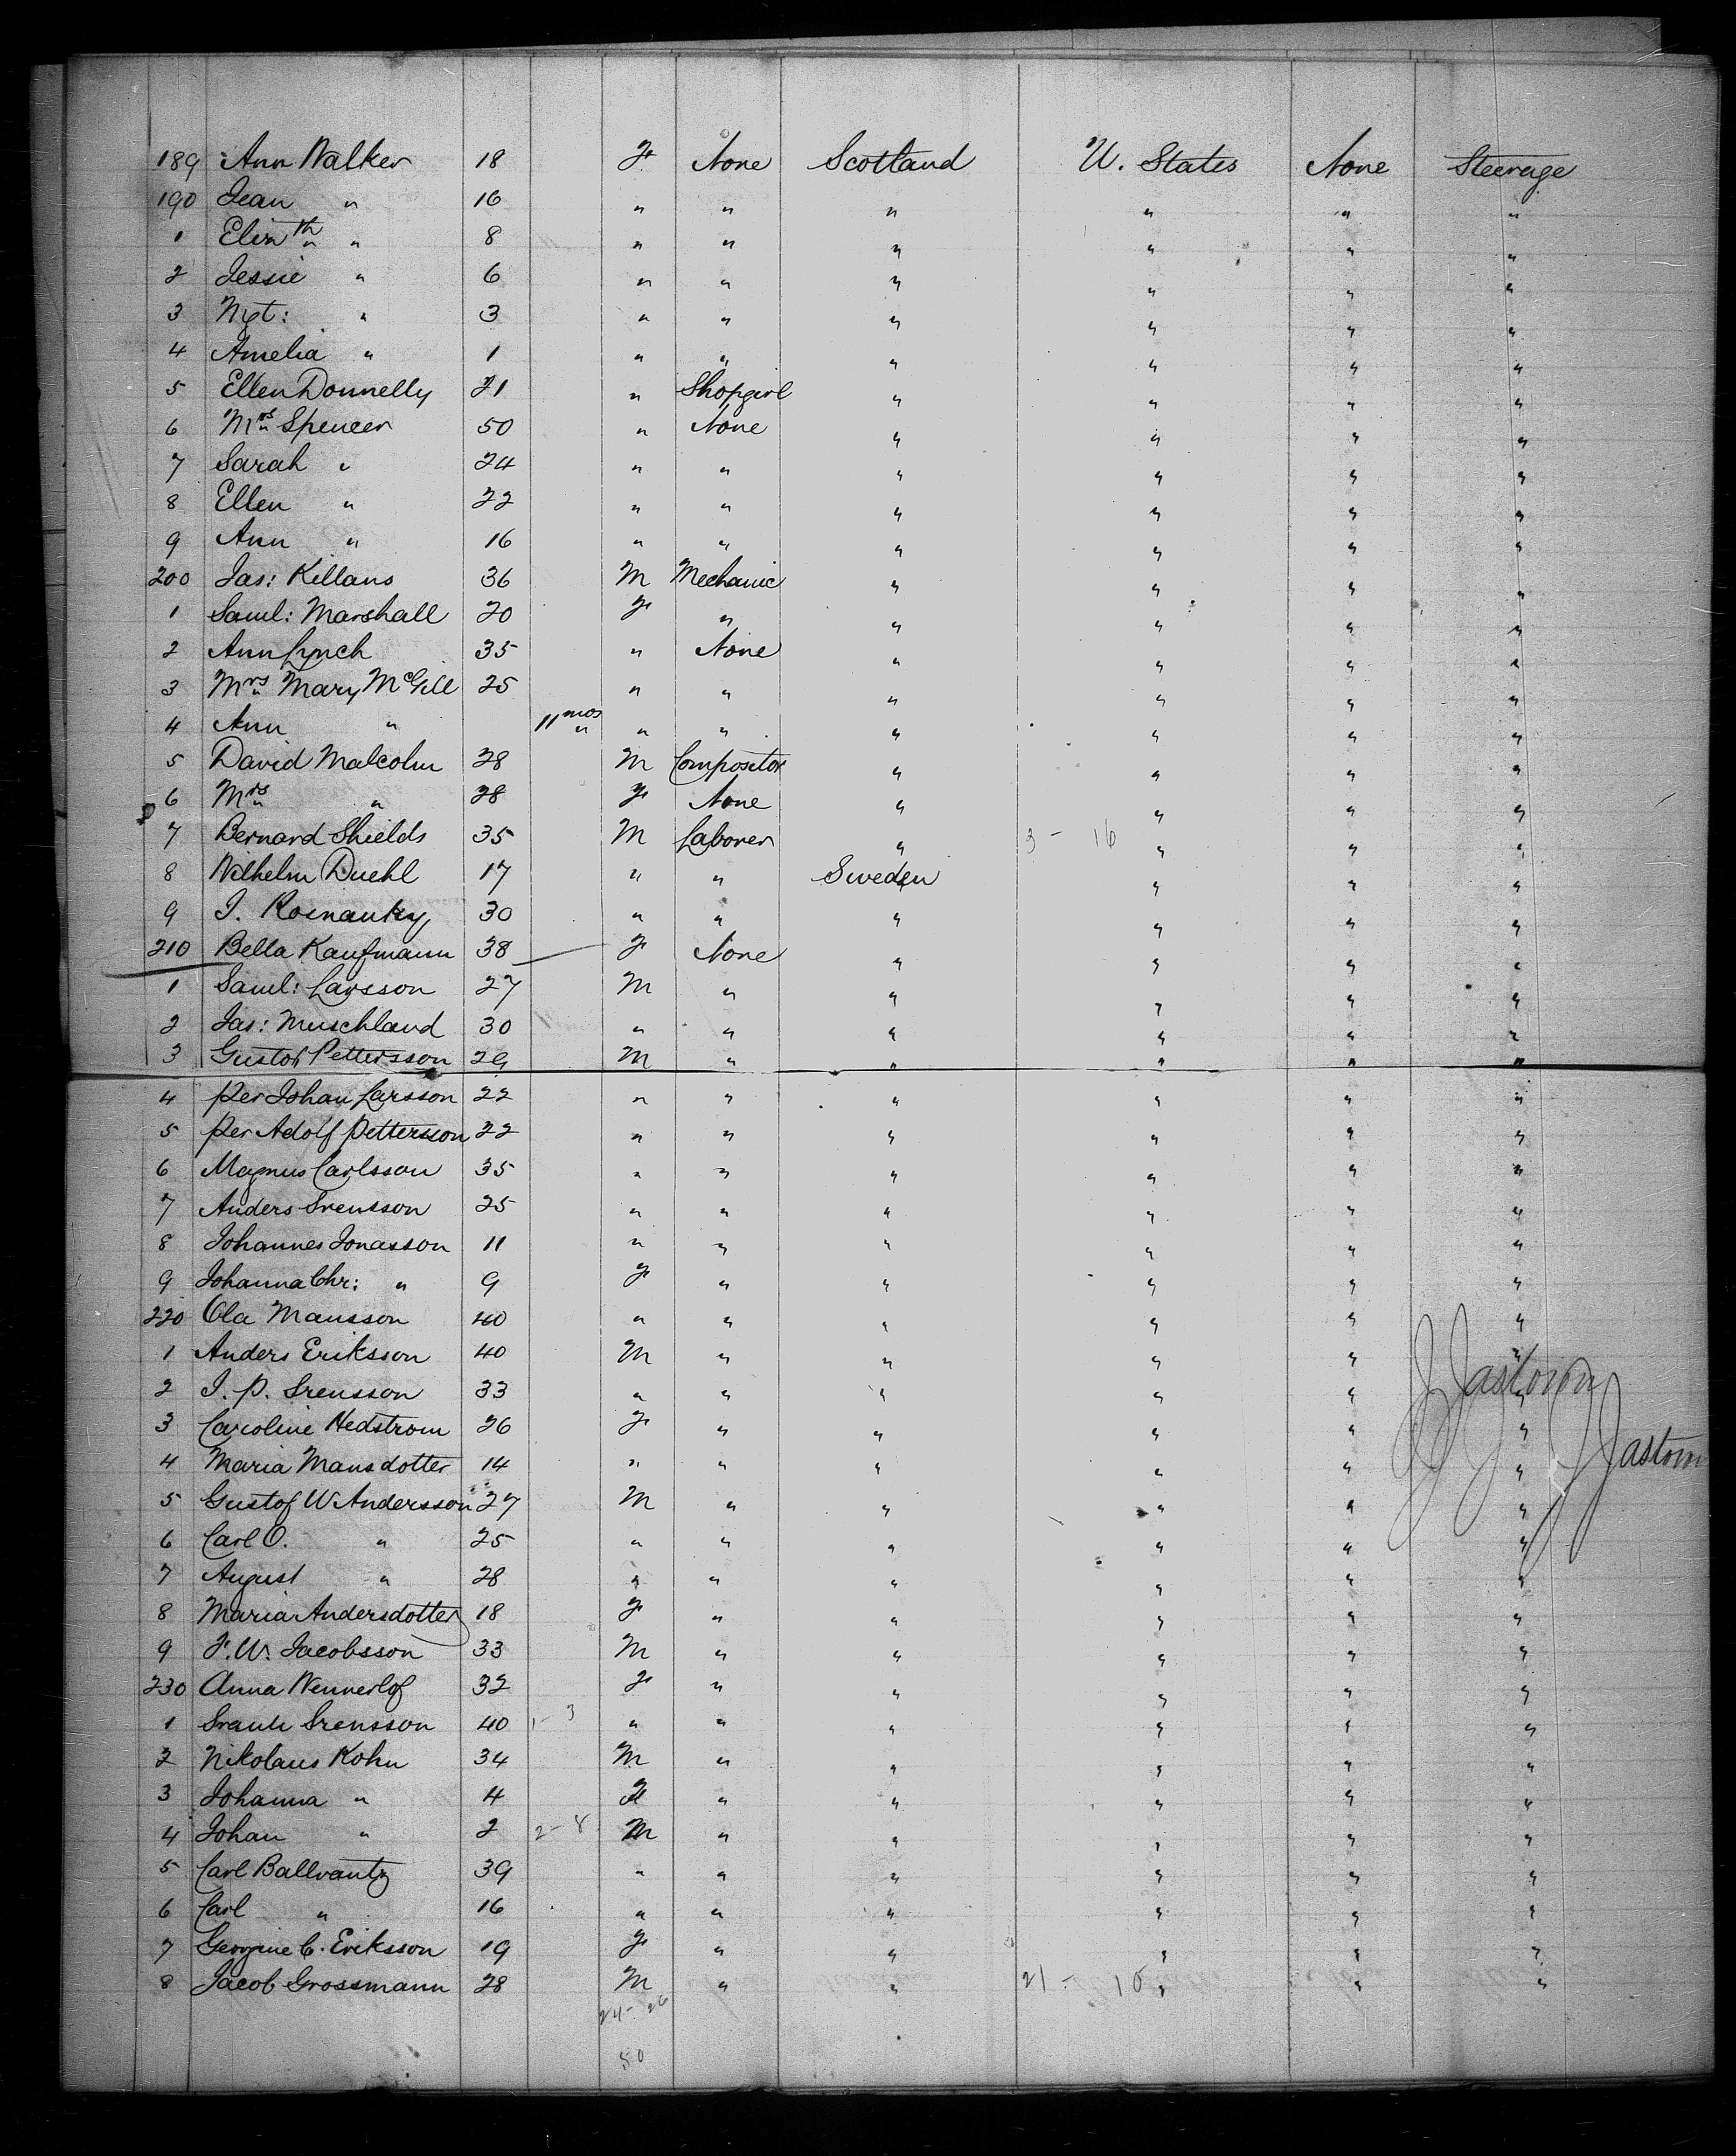 189 Ann Walker 18 F None Scotland U. States None Steerage
190 Jean " 16 " " " " " "
1 Eliz th " 8 " " " " " "
2 Jessie " 6 " " " " " "
3 Mgt: " 3 " " " " " "
4 Amelia " 1 " " " " " "
5 Ellen Donnelly 21 " Shopgirl " " " "
6 Mrs Spencer 50 " None " " " "
7 Sarah " 24 " " " " " "
8 Ellen " 22 " " " " " "
9 Ann " 16 " " " " " "
200 Jas: Killans 36 M Mechanic " " " "
1 Saml: Marshall 20 F " " " " "
2 Ann Lynch 35 " None " " " "
3 Mrs Mary McGill 25 " " " " " "
4 Ann " 11 mos " " " " " "
5 David Malcolm 28 M Compositor " " " "
6 Mrs " 28 F None " " " "
7 Bernard Shields 35 M Laborer " 3 - 16 " " "
8 Wilhelm Duehl 17 " " Sweden " " "
9 J. 30 " " " " " "
210 Bella Kaufmann 38 F None " " " "
1 Saml: Larsson 27 M " " " " "
2 Jas: Muschland 30 " " " " " "
3 Gustof Pettersson 29 M " " " " "
4 Per Johan Larsson 22 " " " " " "
5 Per Adolf Pettersson 22 " " " " " "
6 Magnus Carlsson 35 " " " " " "
7 Anders Svensson 25 " " " " " "
8 Johannes Jonasson 11 " " " " " "
9 Johanna Chr: " 9 F " " " " "
220 Ola Mansson 40 " " " " " "
1 Anders Eriksson 40 M " " " " "
2 J. P. Svensson 33 " " " " " "
3 Caroline Hedstrom 26 F " " " " "
4 Maria Mansdotter 14 " " " " " "
5 Gustof W Andersson 27 M " " " " "
6 Carl O. " 25 " " " " " "
7 August " 28 " " " " " "
8 Maria Andersdotter 18 F " " " " "
9 F. W. Jacobsson 33 M " " " " "
230 Anna Wennerlof 32 F " " " " "
1 Svensson 40 1 - 3 " " " " " "
2 Nikolaus Kohn 34 M " " " " "
3 Johanna " 4 F " " " " "
4 Johan " 2 2 - 8 M " " " " "
5 Carl Ballvantz 39 " " " " " "
6 Carl " 16 " " " " " "
7 Georgine C. Eriksson 19 F " " " " "
8 Jacob Grossmann 28 M " " 21 - 10 " " "
24 - 26
50